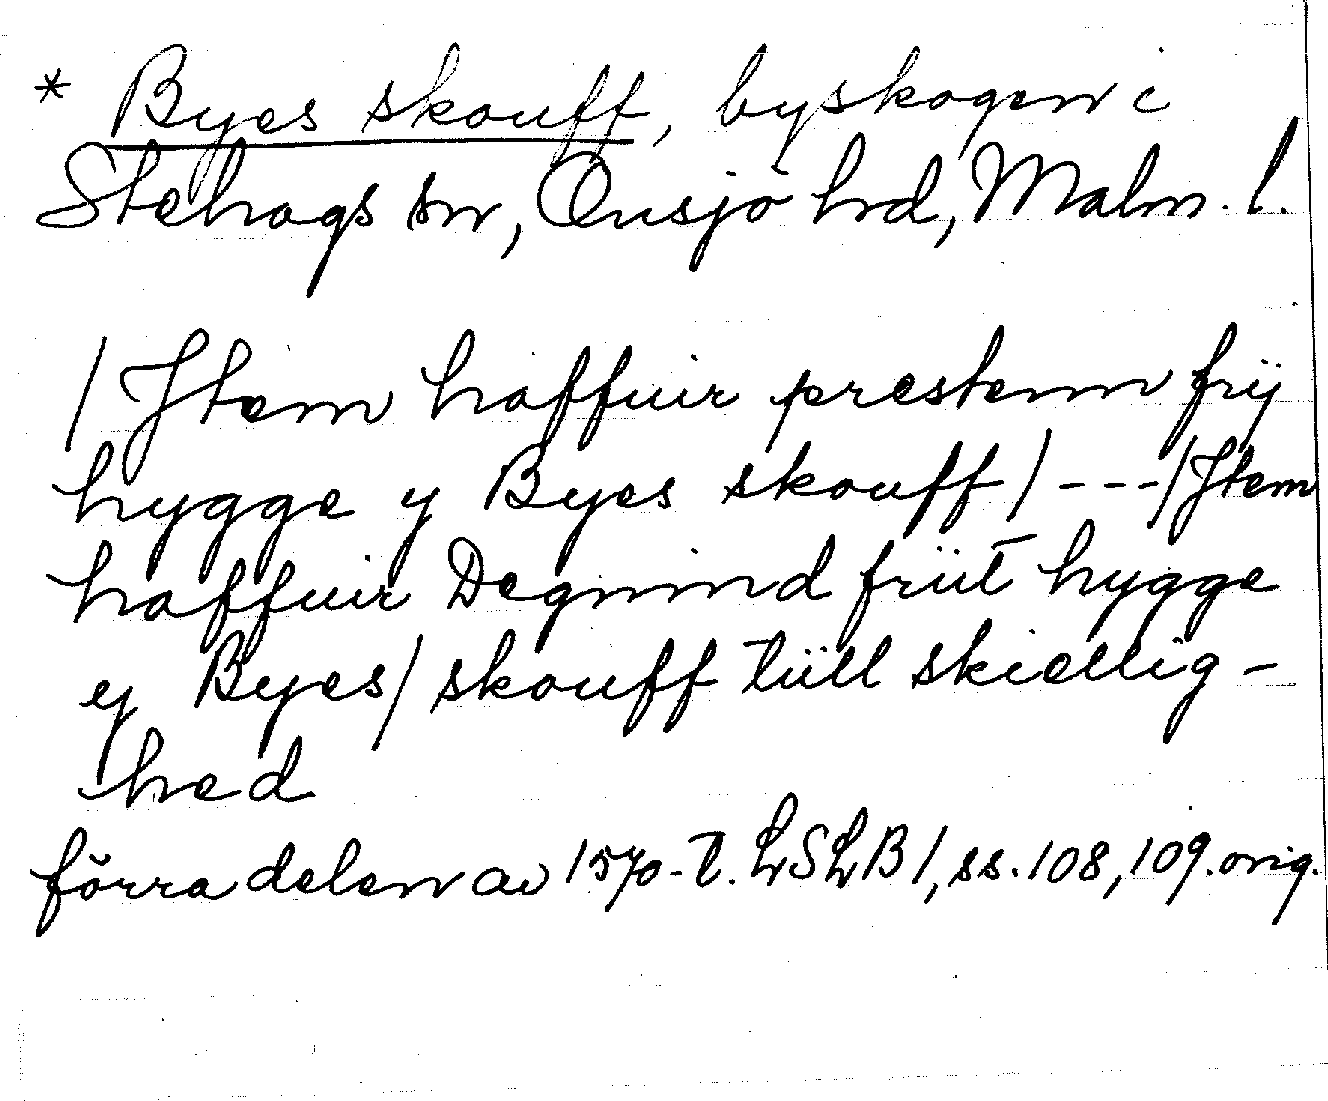 * Byes skouff, byskogen i
Stehags sn, Onsjö hd, Malm. l.
/Jtem haffuir prestenn frij
hygge y Byes skouff/ --- /Jtem
haffuir Degnind friit hygge
y Byes/ skouff tiill skiellig-
hed
förra delen av 1570-t. LSLB 1, ss. 108, 109. orig.